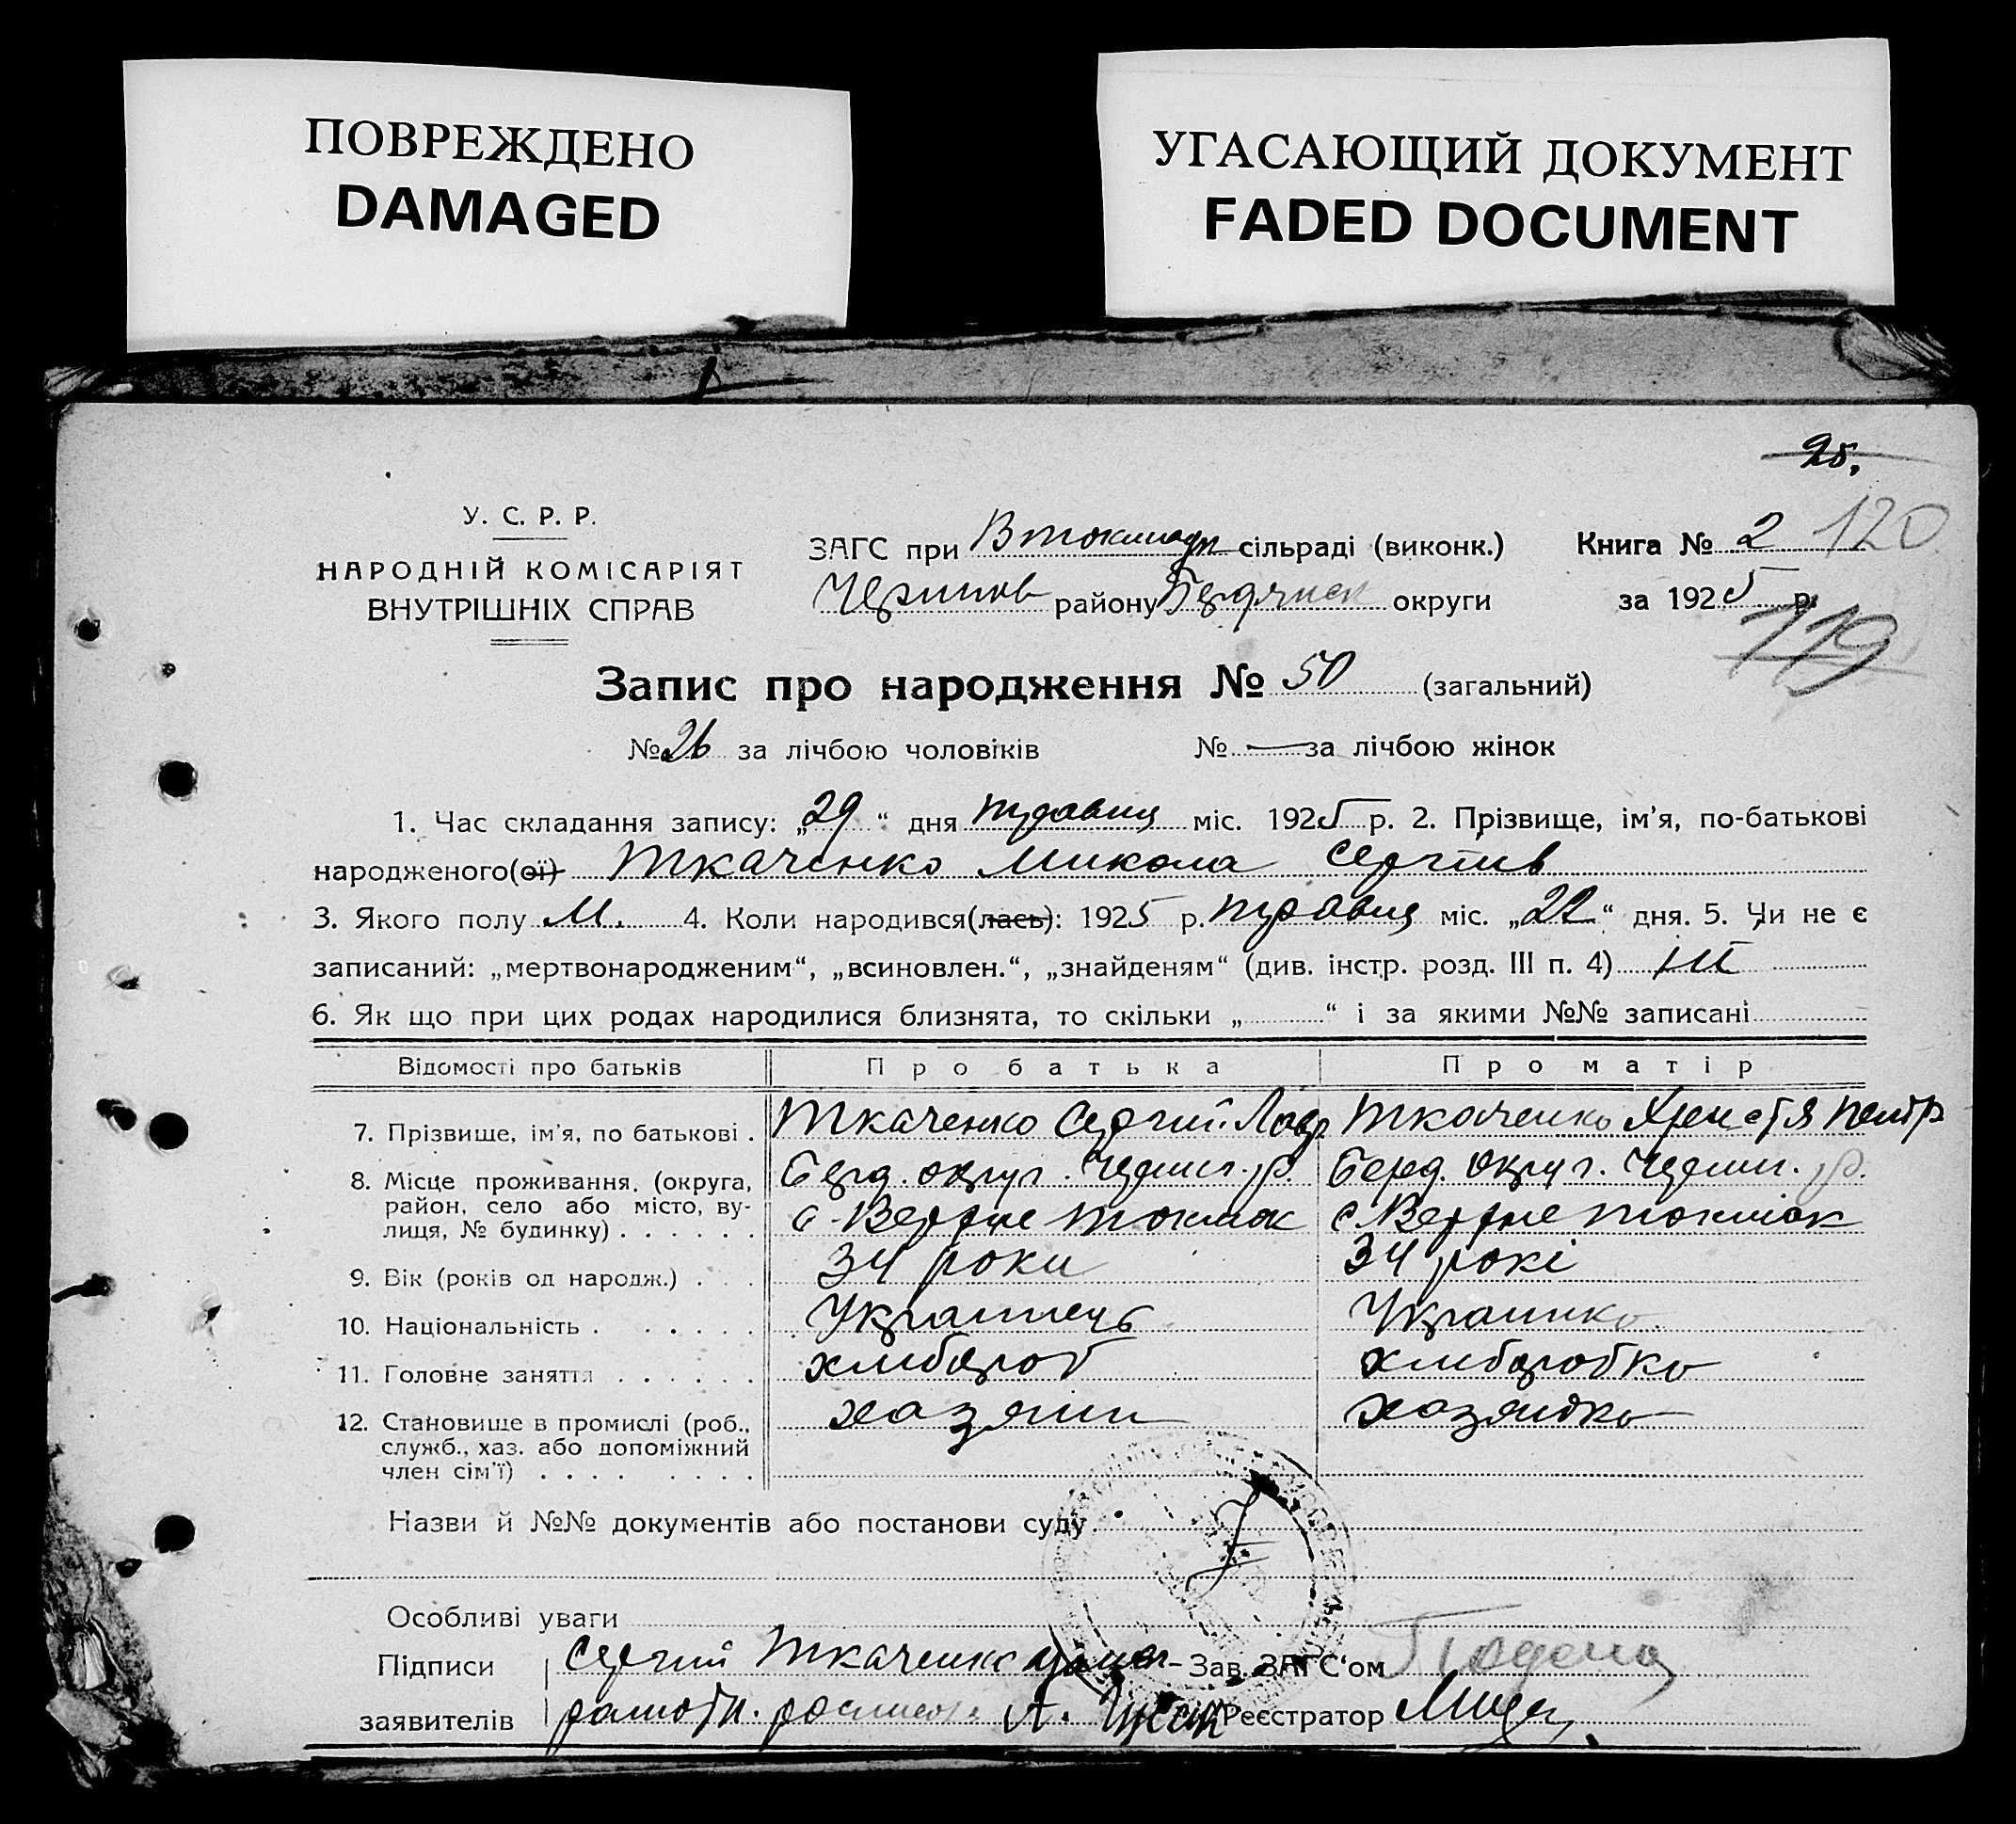 ПОВРЕЖДЕНО
DAMAGED
УГАСАЮЩИЙ ДОКУМЕНТ
FADED DOCUMENT
25.
У. С. Р. Р.
НАРОДНІЙ КОМІСАРІЯТ
ВНУТРІШНІХ СПРАВ
ЗАГС при Втокмацк сільраді (виконк.)
району Бердянск округи
Книга № 2 120
за 1925 р.
119
Запис про народження № 50 (загальний)
№ 26 за лічбою чоловіків № — за лічбою жінок
1. Час складання запису: „29“ дня травця міс. 1925 р. 2. Прізвище, ім’я, по-батькові
народженого(ої) Ткаченко Микола Сергіив
3. Якого полу М. 4. Коли народився(лась): 1925 р. травця міс. „22“ дня. 5. Чи не є
записаний: „мертвонародженим“, „всиновлен.“, „знайденям“ (див. інстр. розд. III п. 4)
6. Як що при цих родах народилися близнята, то скільки „ “ і за якими №№ записані
Відомості про батьків Про батька Про матір
7. Прізвище, ім’я, по батькові . Ткаченко Сергий Лавр Ткаченко Христя Петр
8. Місце проживання, (округа, район, село або місто, вулиця, № будинку) Берд. округ. Черниг. р. Берд. округ. Черниг. р.
с. Верхне Токмак с. Верхне Токмак
9. Вік (років од народж.) 34 роки 34 рокі
10. Національність Украинець Украинка
11. Головне заняття хлибороб хлиборобка
12. Становище в промислі (роб., служб., хаз. або допоміжний член сім’ї) хазяин хазяйка
Назви й №№ документів або постанови суду
Особливі уваги
Підписи Сергий Ткаченко Зав. ЗАГС‘ом
заявителів А. Реєстратор